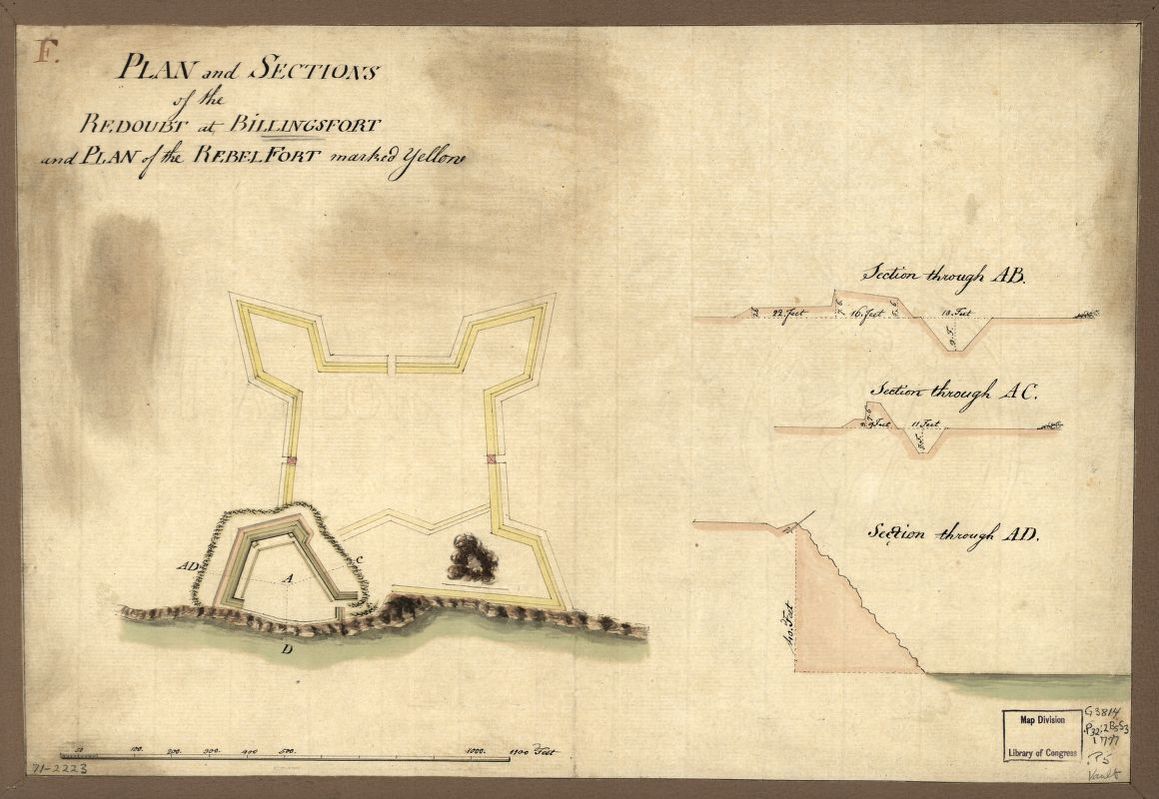 F.
PLAN and SECTIONS
of the
REDOUBT at BILLINGSFORT
and PLAN of the REBEL FORT marked Yellow
Section through AB.
22 feet
16. feet
10. Feet
Section through AC.
9 Feet
11 Feet
Section through AD.
40. Feet
AD
A
C
D
50 100. 200. 300. 400 500. 1000. Feet
71-2223
Map Division
Library of Congress
G3814
1777
.P5
Vault